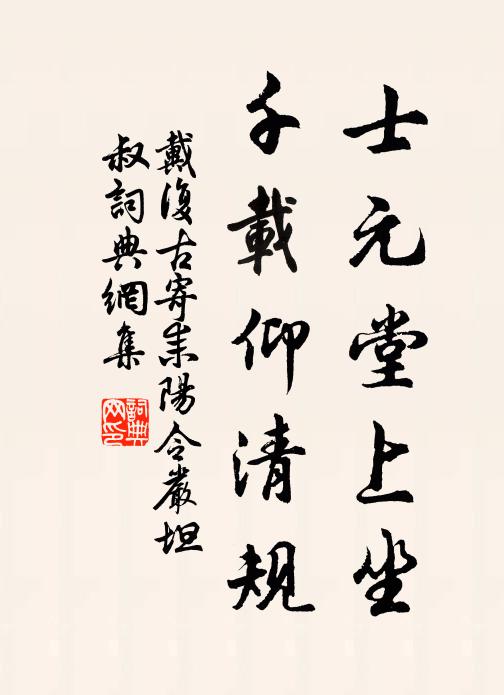 士元堂上坐
千載仰清規
戴復古寄耒陽令嚴坦
叔詞典網集
詞典
网印